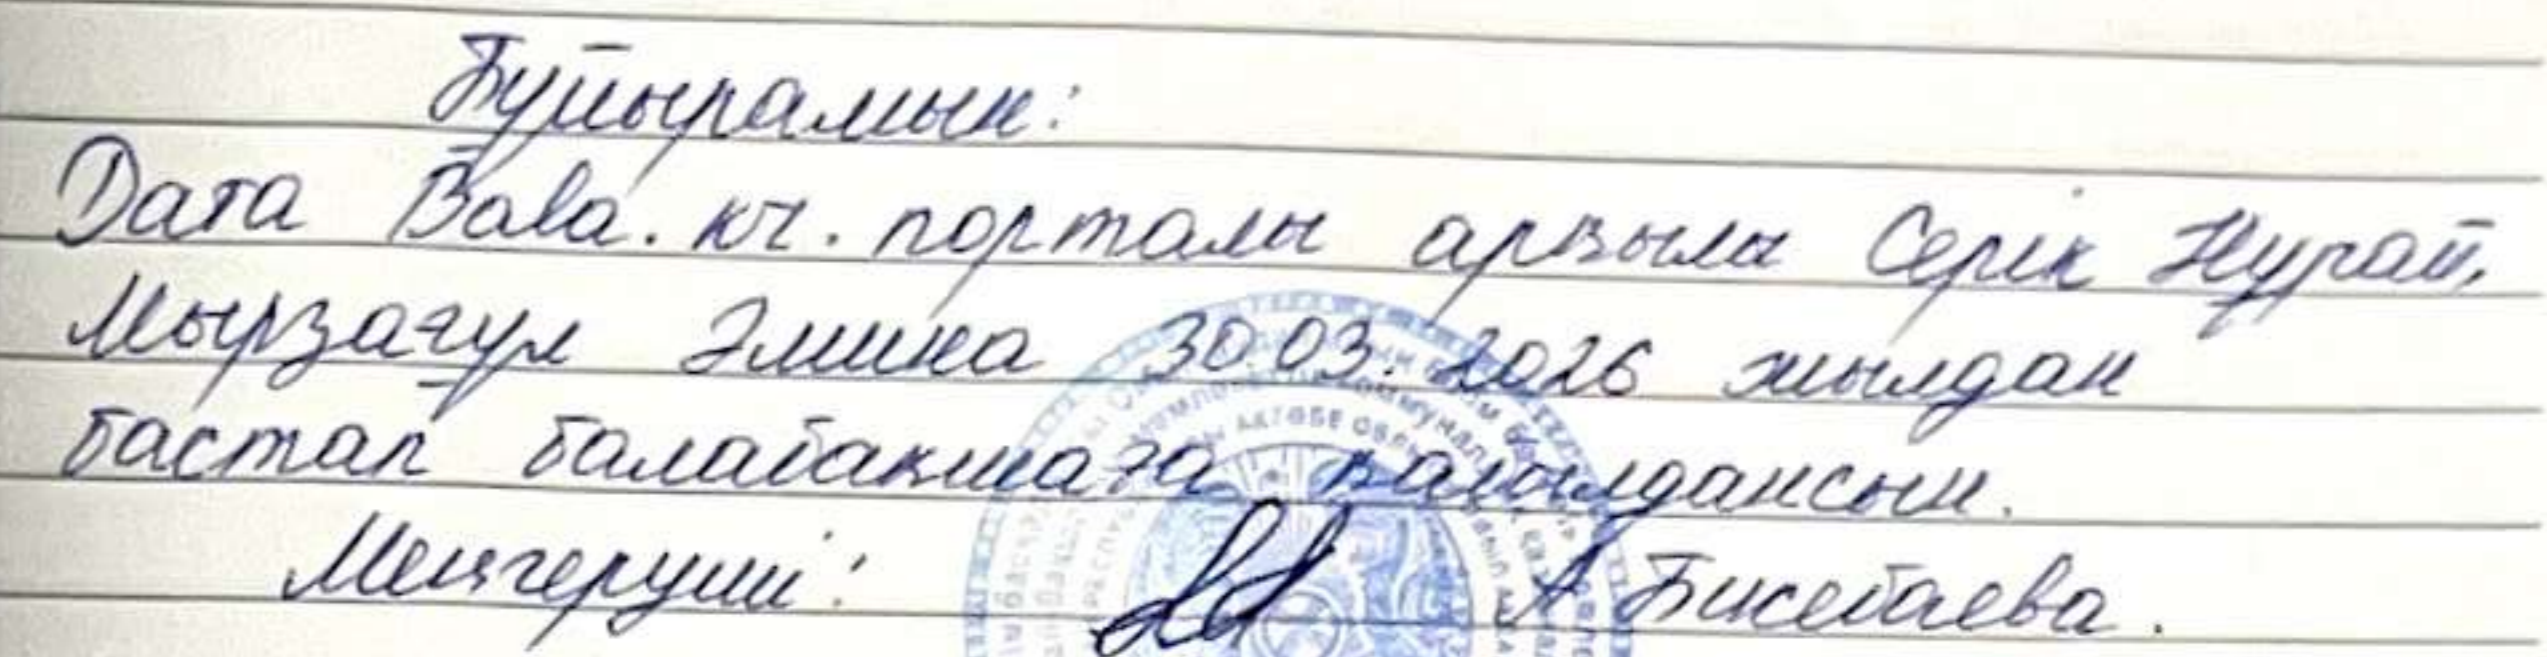 Бұйырамын:
Дата Bala. кz. порталы арқылы Серік Нұрай,
Мырзағұл Әмина 30.03.2026 жылдан
бастап балабақшаға қабылдансын.
Меңгеруші: А Бисебаева.
АҚТӨБЕ ОБЛ